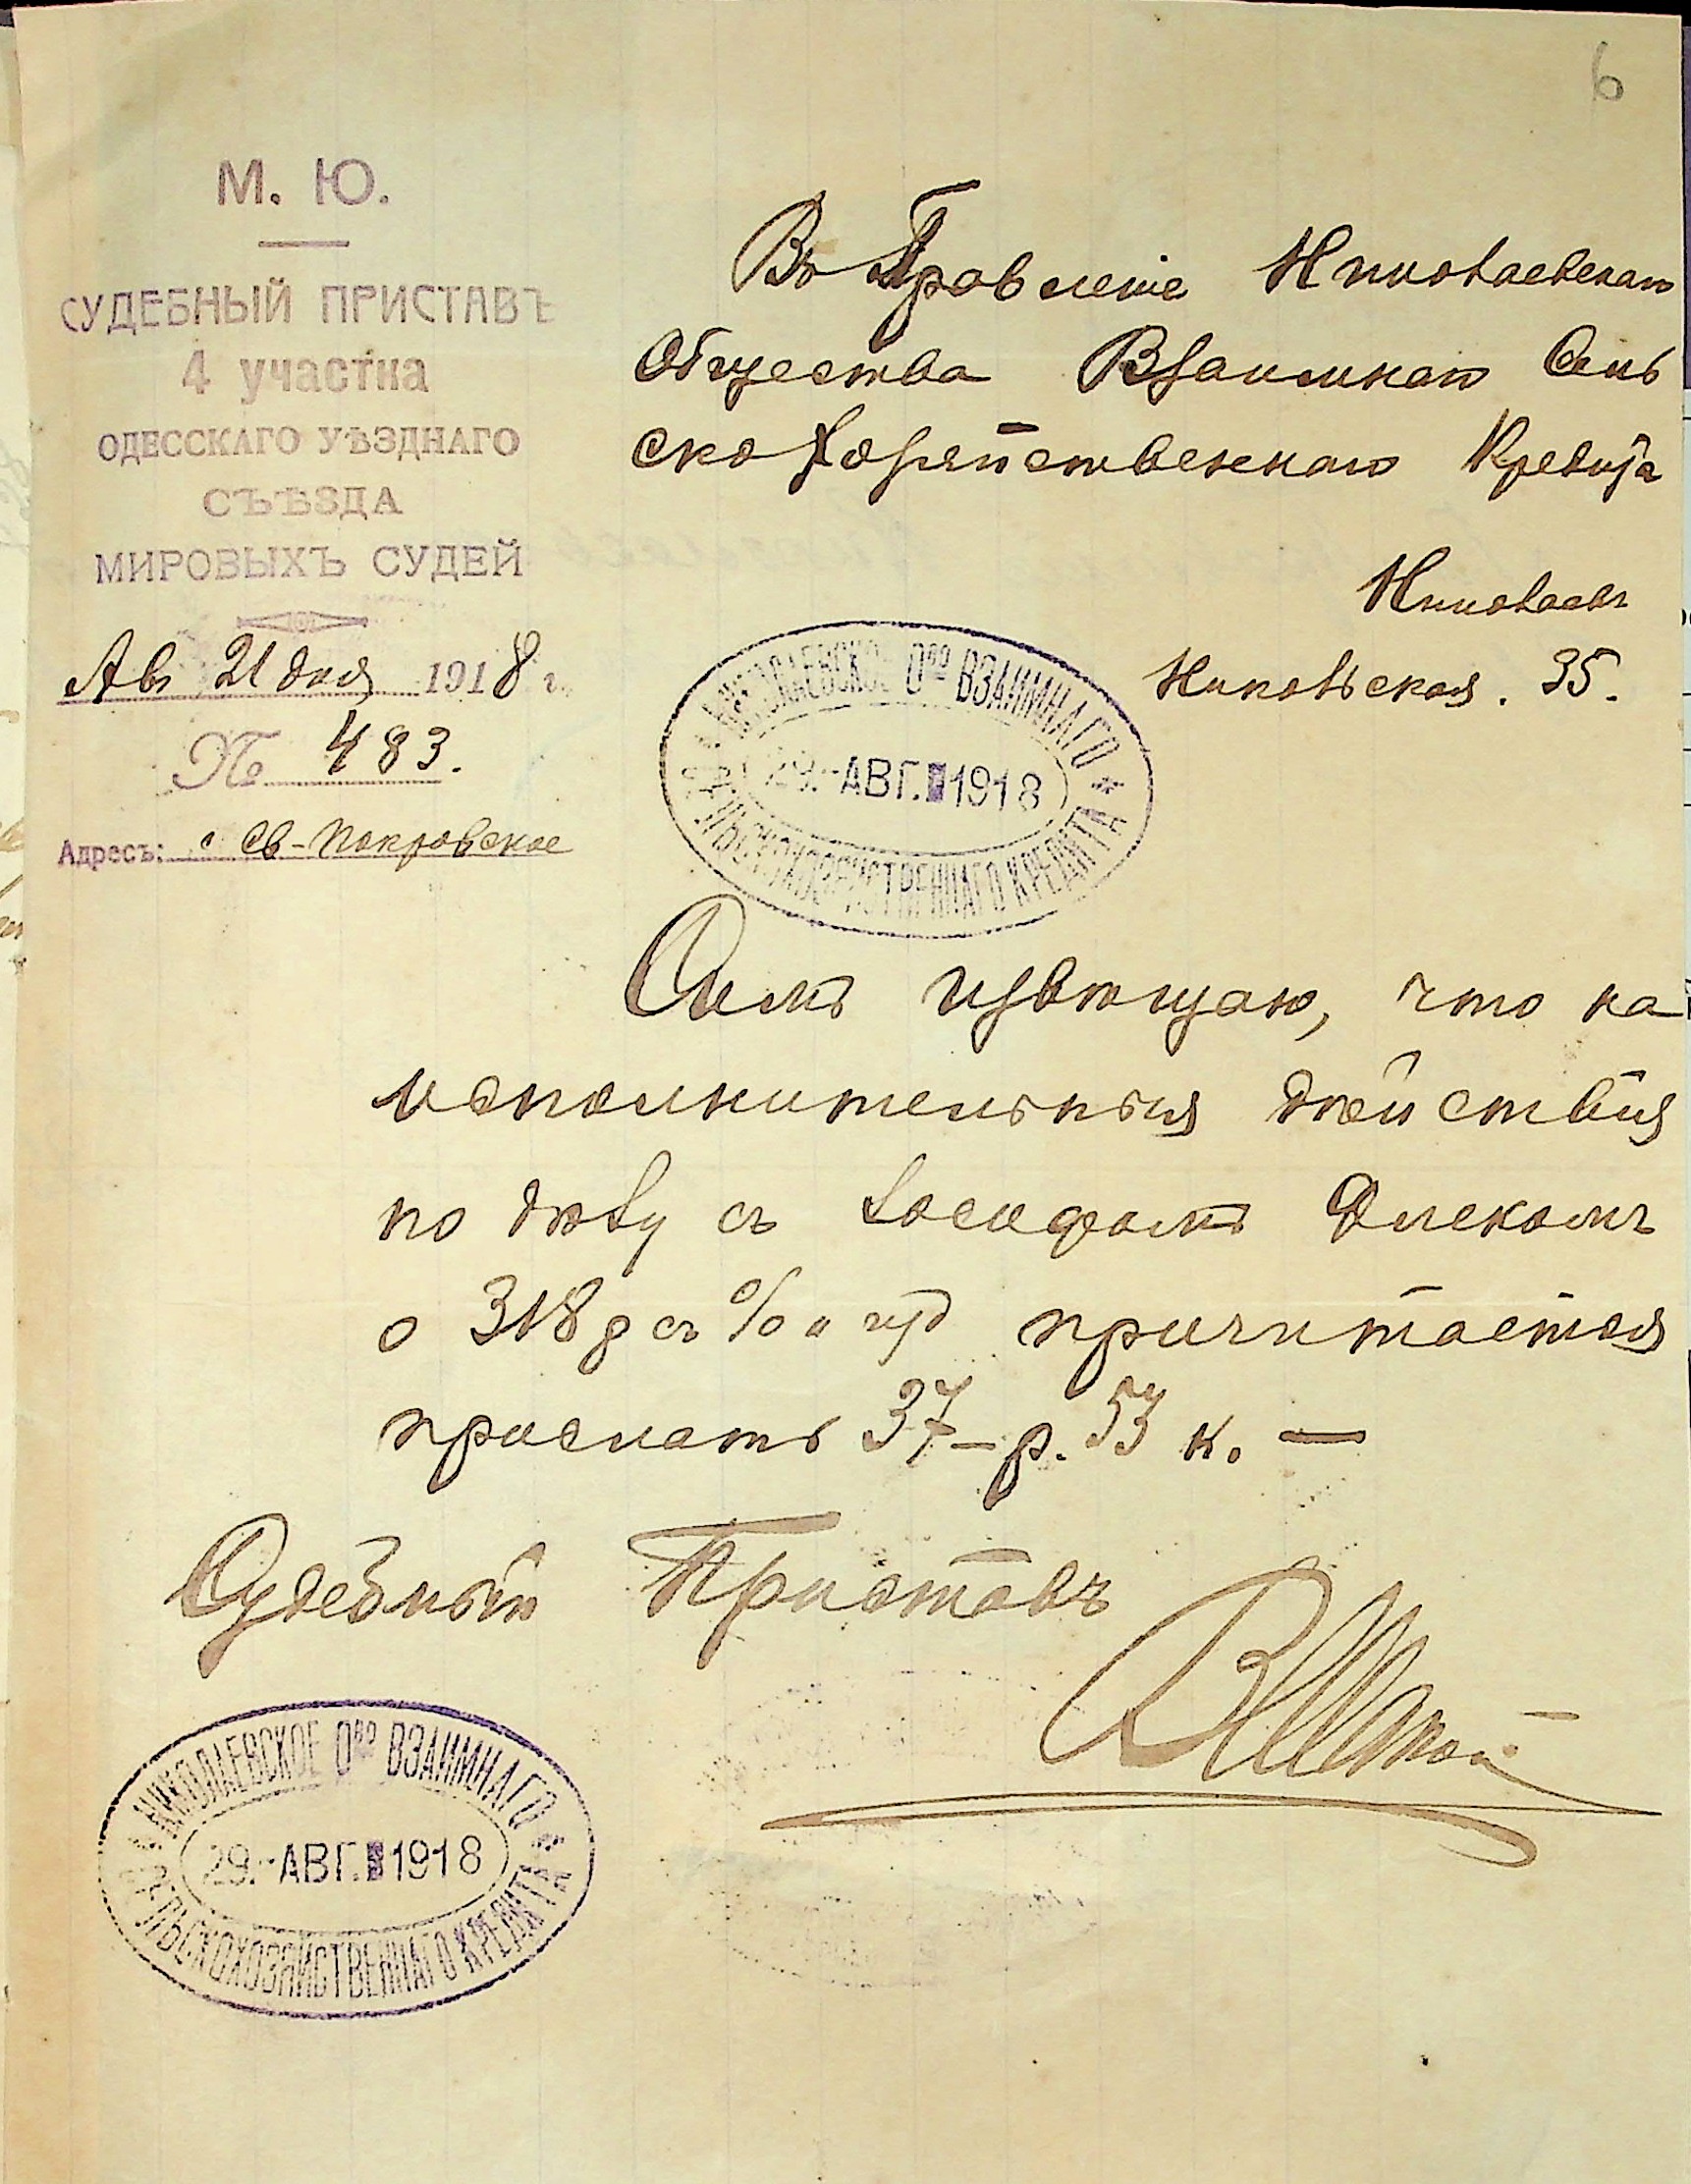 6
М. Ю.
СУДЕБНЫЙ ПРИСТАВЪ
4 участка
ОДЕССКАГО УѢЗДНАГО
СЪѢЗДА
МИРОВЫХЪ СУДЕЙ
Авг 21 дня 1918 г.
№ 483.
Адресъ: с Св-Покровское
Въ Правленіе Николаевскаго
Общества Взаимнаго Сель
скохозяйственнаго Кредита
Николаевъ
Никольская. 35.
НИКОЛАЕВСКОЕ О-ВО ВЗАИМНАГО
29.-АВГ. 1918
СЕЛЬСКОХОЗЯЙСТВЕННАГО КРЕДИТА
Симъ извѣщаю, что на
исполнительныя дѣйствія
по дѣлу съ Іосифомъ
о 318 р съ % и изд причитается
прислать 37-р. 53 к. —
Судебный Приставъ
НИКОЛАЕВСКОЕ О-ВО ВЗАИМНАГО
29.-АВГ. 1918
СЕЛЬСКОХОЗЯЙСТВЕННАГО КРЕДИТА